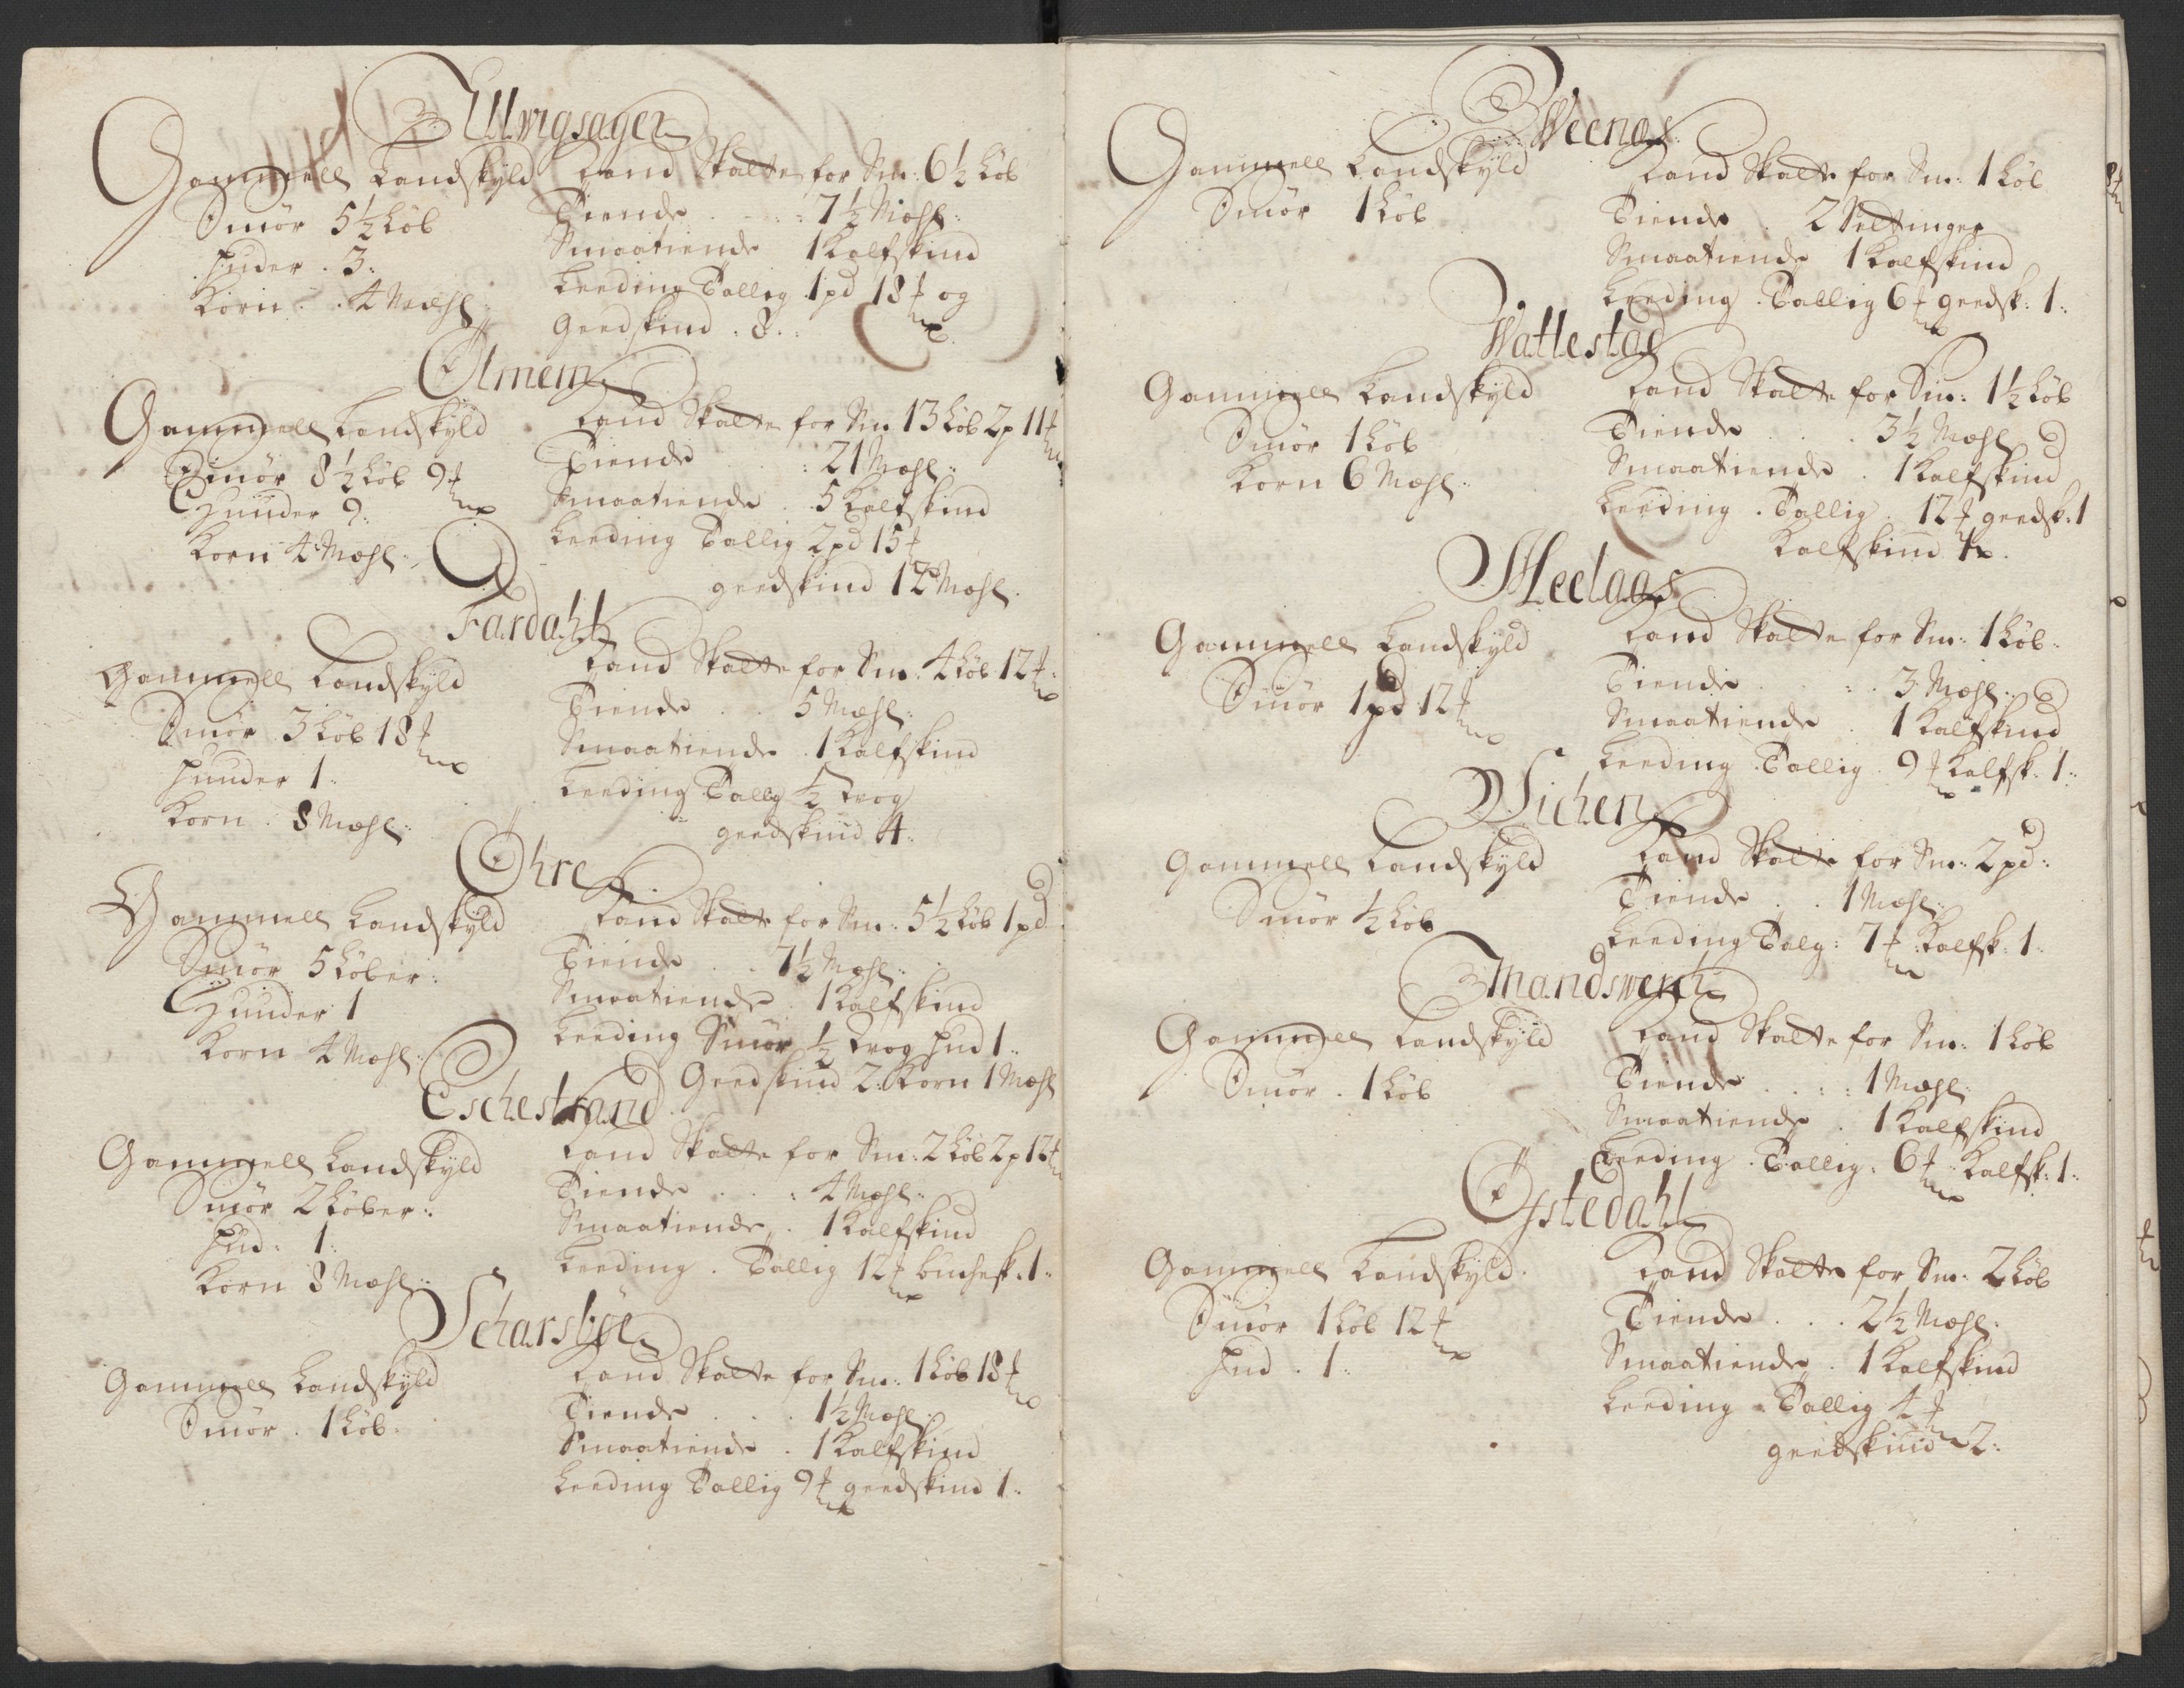 Ullvigsager
Gammell Landskyld
Smør 5½ Løb
Huder . 3:
Korn . . 4 Mæhl:
Land Skatte for Sm: 6½ Løb
Tiende . . . : 7½ Mæhl:
Smaatiende 1 Kalfskind
Leeding Tallig 1 pd 18 ℔ og
Geedskind . 8 . .
Ølmem
Gammell Landskyld
Smør 8½ Løb 9 ℔
Huuder 9:
Korn 4 Mæhl:
Land Skatte for Sm 13 Løb 2 p 11 ℔
Tiende . . : 21 Mæhl:
Smaatiende . . 5 Kalfskind
Leeding Tallig 2 pd 15 ℔
geedskind 12 Mæhl.
Fardahl
Gammell Landskyld
Smør 3 Løb 18 ℔
Huuder 1:
Korn . 8 Mæhl:
Land Skatte for Sm: 4 Løb 12 ℔:
Tiende . . 5 Mæhl:
Smaatiende . 1 Kalfskind
Leeding Tallg ½ Trog
geedskind 4:
Øhre
Gammell Landskyld
Smør 5 Løber:
Huuder 1
Korn 4 Mæhl:
Land Skatt for Sm: 5½ Løb 1 pd
Tiende . . 7½ Mæhl:
Smaatiende . 1 Kalfskind
Leeding Smør ½ Trog Hud 1:
Geedskind 2: Korn 1 Mæhl
Eschestrand
Gammell Landskyld
Smør 2 Løber:
Hud: 1:
Korn 8 Mæhl:
Land Skatte for Sm: 2 Løb 2 p 12 ℔
Tiende . . : 4 Mæhl:
Smaatiende . 1 Kalfskind
Leeding . Tallig 12 ℔ buchesk: 1:
Scharsbøe
Gammell Landskyld
Smør . 1 Løb.
Land Skatte for Sm: 1 Løb 18 ℔
Tiende . . . 1½ Mæhl
Smaatiende . 1 Kalfskind
Leeding Tallig 9 ℔ geedskind 1:
Weenæs
Gammell Landskyld
Smør 1 Løb
Land Skatte for Sm: 1 Løb
Tiende . 2 Seltinger
Smaatiende 1 Kalfskind
Leeding . Tallig 6 ℔ geedsk: 1:
Wattestad
Gammell Landskyld
Smør 1 Løb
Korn 6 Mæhl:
Land Skatte for Sm: 1½ Løb
Tiende . . . 3½ Mæhl
Smaatiende . 1 Kalfskind
Leeding . Tallig . 12 ℔ geedsk: 1
Kalfskind 1.
Meelaas
Gammell Landskyld
Smør 1 pd 12 ℔
Land Skatte for Sm: 1 Løb:
Tiende . . : . 3 Mæhl:
Smaatiende . 1 Kalfskind
Leeding . Tallig . 9 ℔ Kalfsk: 1:
Wichen
Gammell Landskyld
Smør ½ Løb
Land Skatte for Sm: 2 pd:
Tiende . . 1 Mæhl:
Leeding Talg: 7 ℔ Kalfsk: 1:
Mandswerch
Gammell Landskyld
Smør . 1 Løb
Land Skatte for Sm: 1 Løb
Tiende . . : : 1 Mæhl:
Smaatiende . 1 Kalfskind
Leeding . Tallig . 6 ℔ Kalfsk: 1:
Øfstedahl
Gammell Landskyld.
Smør 1 Løb 12 ℔
Hud . 1:
Land Skatte for Sm: 2 Løb
Tiende . . . 2½ Mæhl:
Smaatiende . 1 Kalfskind
Leeding . Tallig 4 ℔
geedskind 2: